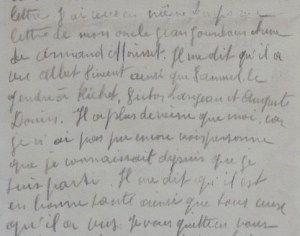 lettre. J'ai reçu en même temps une
lettre de mon oncle Jean
de Armand. Il me dit qu'il a
vu Albert ainsi que Samuel, le
gendre à Richet, Victor et Auguste
Il a plus de veine que moi, car
je n'ai pas pu encore voir personne
que je connaissait depuis que je
suis parti. Il me dit qu'il est
en bonne santé ainsi que tous ceux
qu'il a vus. Je vous quitte en vous